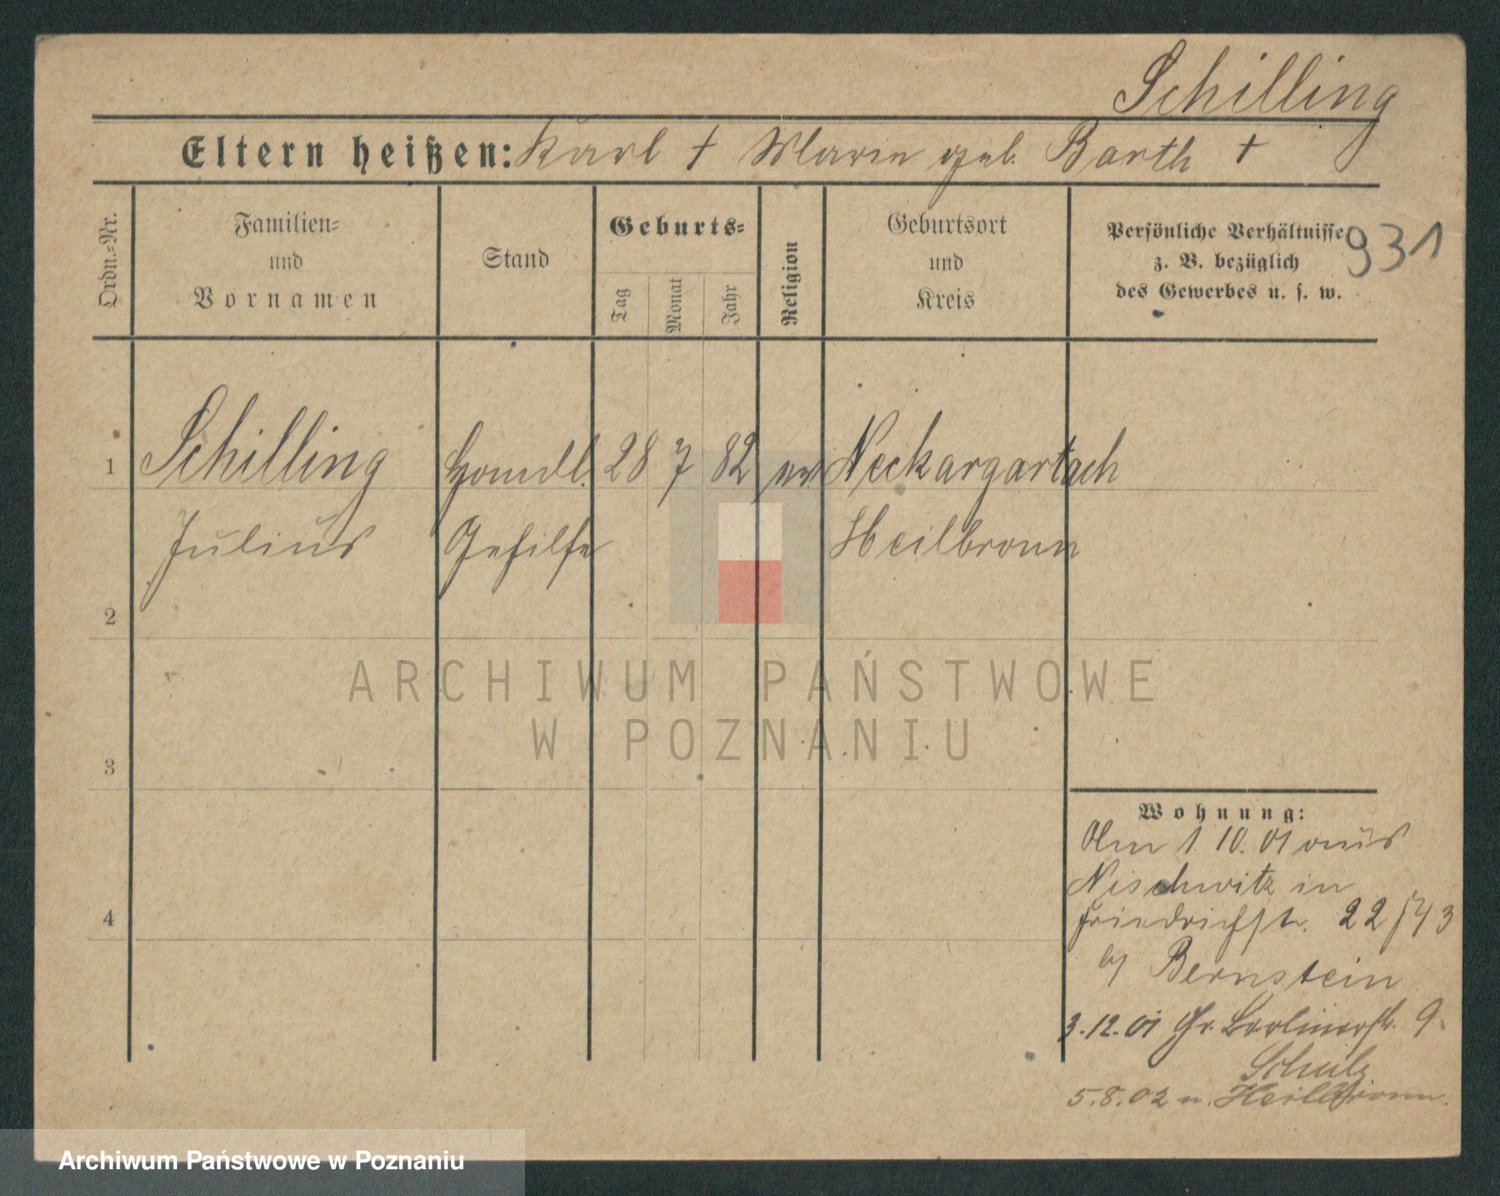 Schilling
Eltern heißen: Karl † Marie geb. Barth †
Ordn.-Nr.
Familien-
und
Vornamen
Stand
Geburts-
Tag
Monat
Jahr
Religion
Geburtsort
und
Kreis
Persönliche Verhältnisse
z. B. bezüglich
des Gewerbes u. s. w.
931
1 Schilling Handl. 28 7 82 ev. Neckargartach
Julius Gehilfe Heilbronn
2
3
4
ARCHIWUM PAŃSTWOWE
W POZNANIU
Wohnung:
Am 1. 10. 01 aus
Nischwitz in
Friedrichstr. 22
b/ Bernstein
3.12.01 Gr. Berlinerstr. 9.
Schulz
5.8.02 n. Heilbronn.
Archiwum Państwowe w Poznaniu